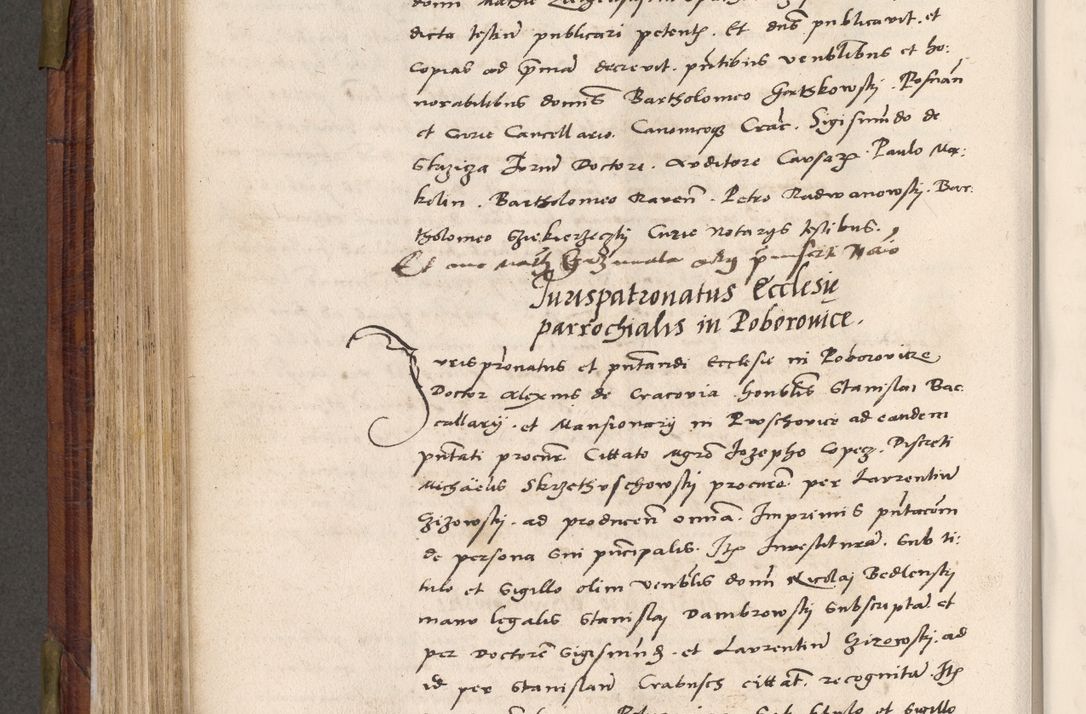 dicta testium publicari petente. Et dns publicavit. et
copias ad pmia decrevit. pntibus venblibus et ho:
norabilibus domis Bartholomeo Gostkowskj. Posnan
et Curie Cancellario. Canonicoqz Crac. Sigismundo de
Stazicza Jurium Doctore. Auditore Causarz. Paulo Mar:
kelin. Bartholomeo Raven. Petro Radwanowskj. Bar
tholomeo Gziekierzeczkj Curie Notarijs testibus.
Jurispatronatus Ecclesię
parrochialis in Poborovice.
Jurispronatus et pntandi Ecclesie in Poborovicze
Doctor Alexius de Cracovia honblis Stanislai Bac
callarij. et Mansionarij in Proschovice ad eandem
pntati procur. Cittato Mgro Jozepho Copecz. Discreti
Michaelis Skrzethuschowskj procure per Laurentium
Gizowskj. ad producen omia. Imprimis pntacom
de persona Sui pncipalis. Itz Investitura. Sub ti:
tulo et Sigillo olim venblis domi Nicolaj Bedlenskj
manu legalis Stanislaj Dambrowskj Subscripta. et
per Doctore Sigismund. et Laurentium Gizowskj. ad
id per Stanislaum Crabusch cittat. recognita. Itz